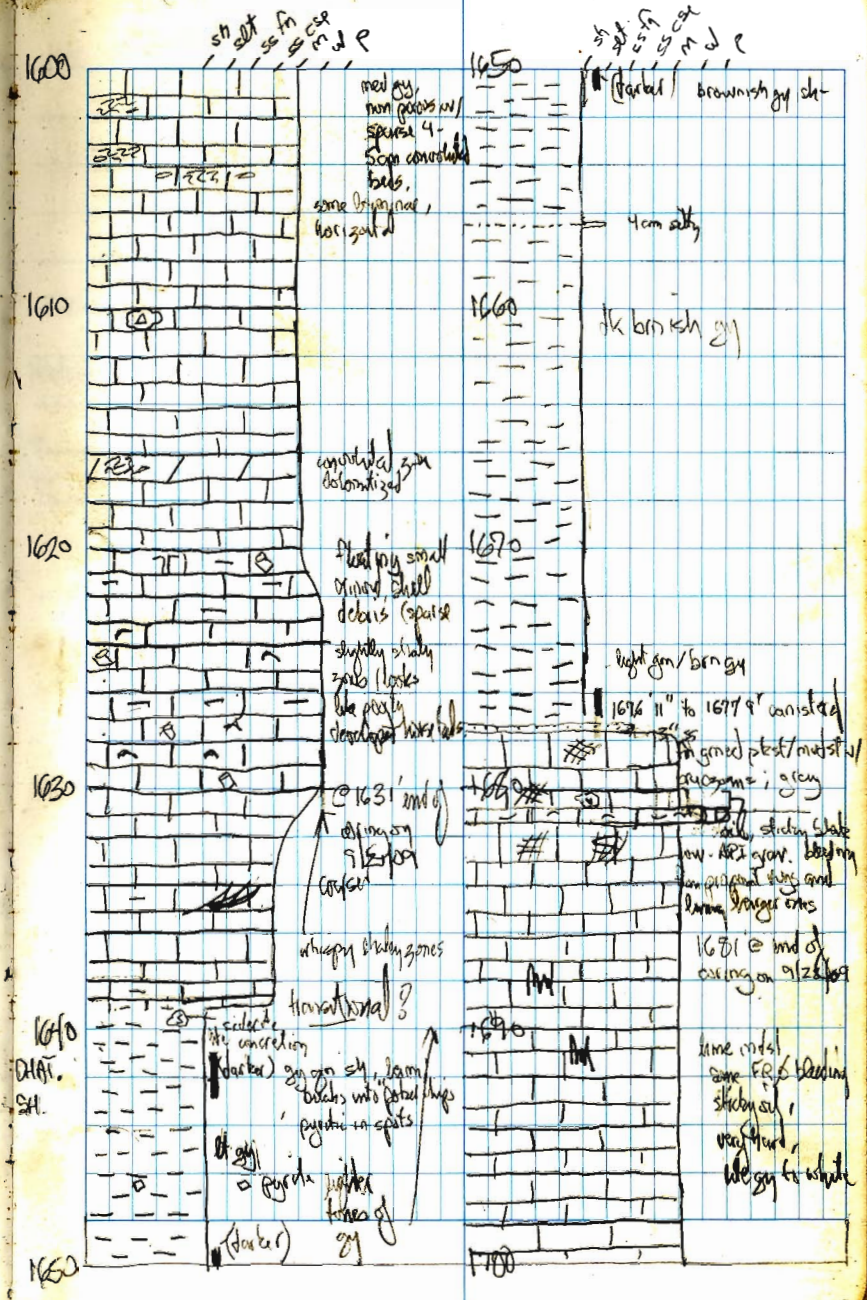 sh slt ss fn ss cse m w p
1600
med gy,
non porous w/
sparse 4-
5cm convoluted
beds,
some laminae,
horizontal
1610
convoluted
dolomitized
1620
floating small
crinoid shell
debris (sparse
slightly shaly
zone looks
like poorly
developed
1630
@ 1631' end of
coring on
whispy shaley zones
transitional?
1640
CHAT.
SH.
concretion
(darker) gy grn sh,
breaks into "potato chips
pyrite in spots
lt gy,
pyrite lighter
tones of
gy
(darker)
1650
sh slt ss fn ss cse m w p
1650
(darker) brownish gy sh-
4cm silty
1660
dk brnish gy
1670
light grn/brn gy
1676'11" to 1677'9" canistered
3" ss
fn grned pkst/mudst w/
bryozoans; gray
1680
sticky
low-API grav. bleeding
from vugs and
larger ones
1681' @ end of
coring on 9/28/09
1690
lime mdst
some FRAC bleeding
sticky oil,
very hard,
gy to white
1700